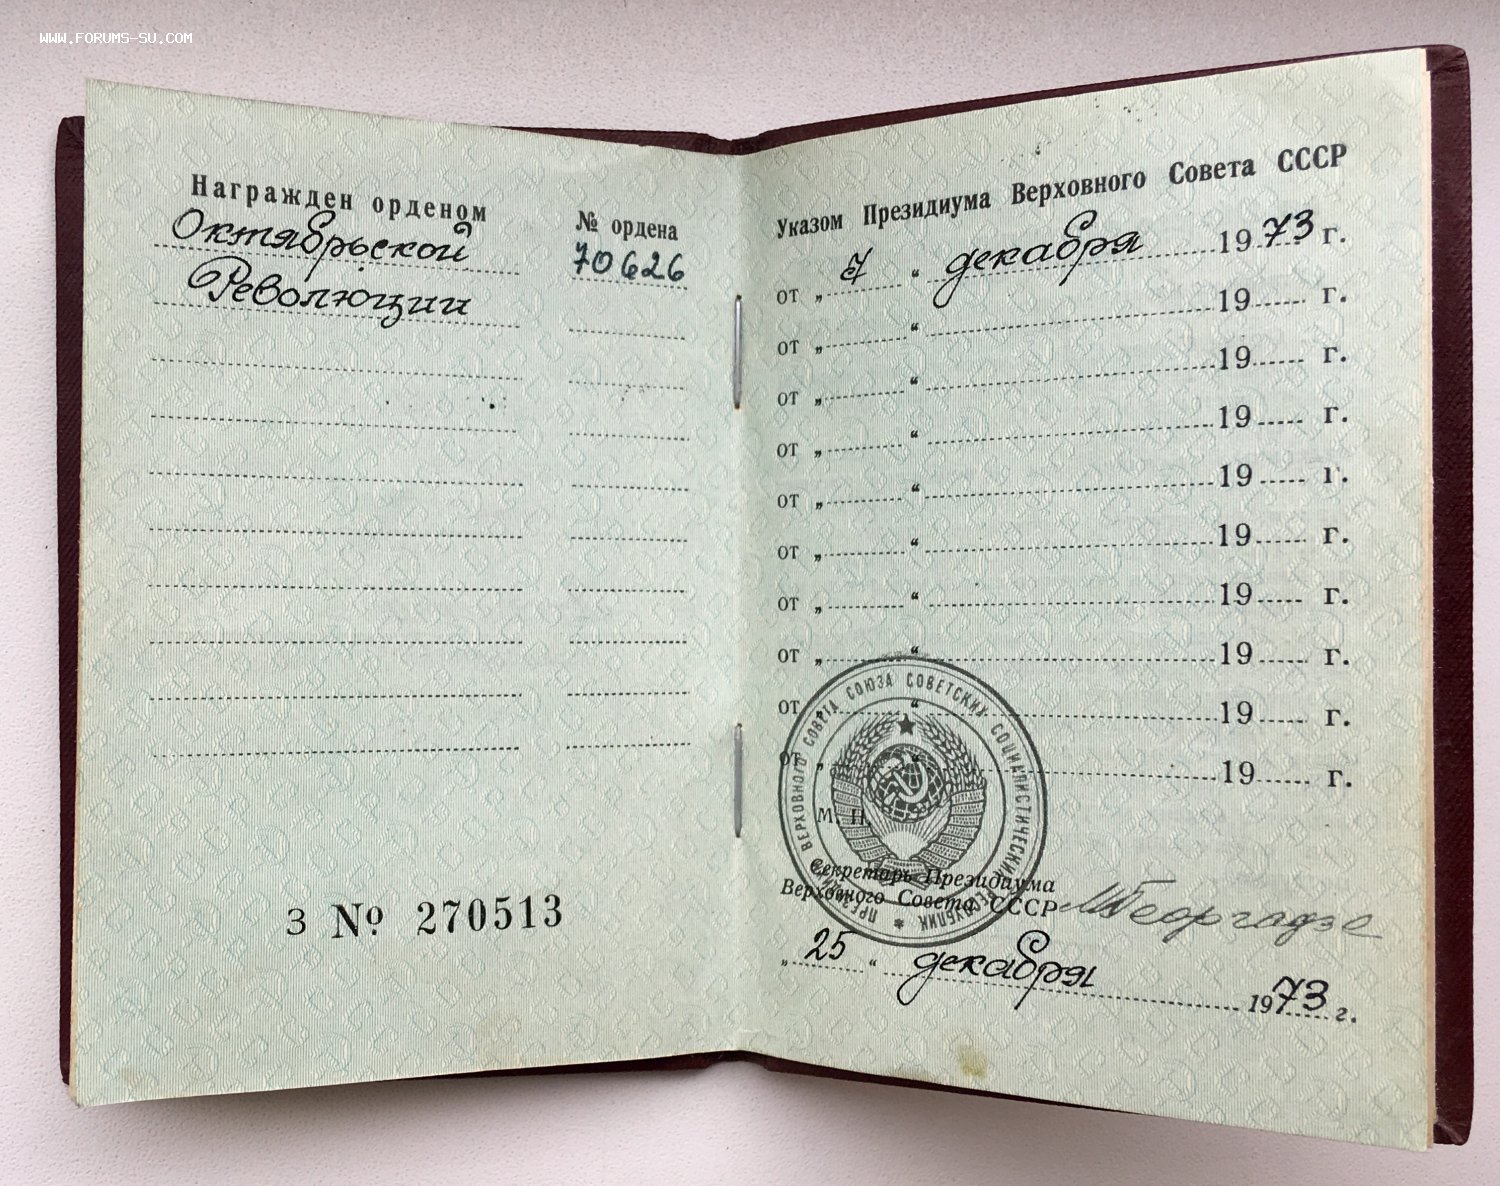 WWW.FORUMS-SU.COM
Награжден орденом
№ ордена
Октябрьской
70626
Революции
З № 270513
Указом Президиума Верховного Совета СССР
от „ 7 “ декабря 1973 г.
от „ “ 19 г.
от „ “ 19 г.
от „ “ 19 г.
от „ “ 19 г.
от „ “ 19 г.
от „ “ 19 г.
от „ “ 19 г.
от „ “ 19 г.
от „ “ 19 г.
ПРЕЗИДИУМ ВЕРХОВНОГО СОВЕТА СОЮЗА СОВЕТСКИХ СОЦИАЛИСТИЧЕСКИХ РЕСПУБЛИК
М. П.
Секретарь Президиума
Верховного Совета СССР МГеоргадзе
„ 25 “ декабря 1973 г.